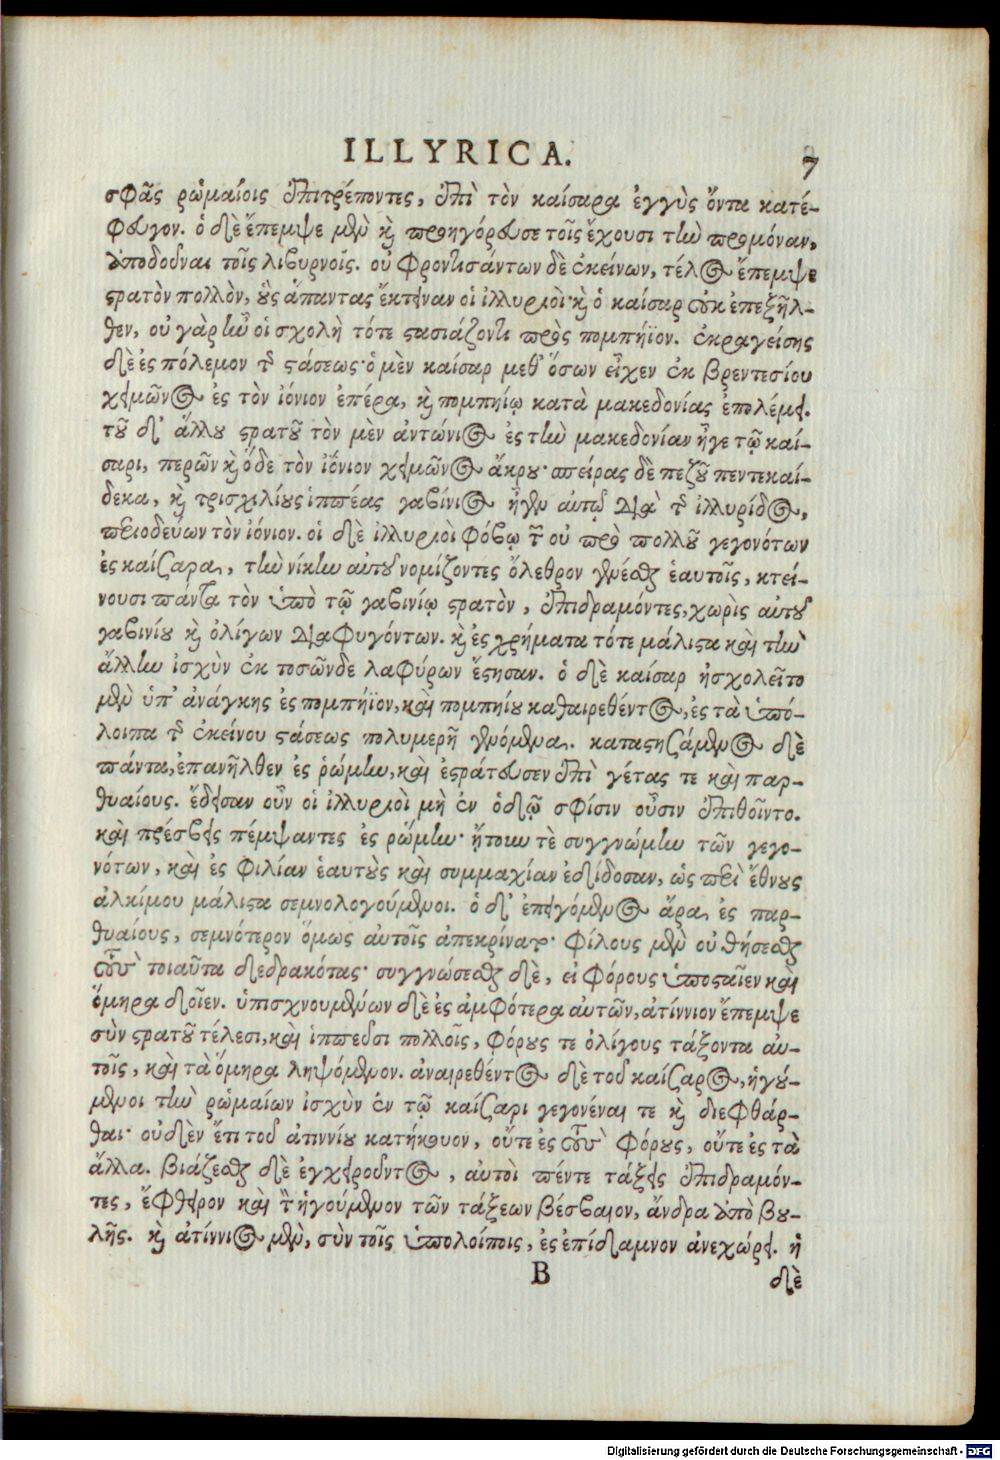 ILLYRICA. 7
σφᾶς ῥωμαίοις ἐπιτρέποντες, ἐπὶ τὸν καίσαρα ἐγγὺς ὄντα κατέ-
φευγον. ὁ δὲ ἔπεμψε μὲν καὶ προηγόρευσε τοῖς ἔχουσι τὴν πρωμόναν,
ἀποδοῦναι τοῖς λιβυρνοῖς. οὐ φροντισάντων δὲ ἐκείνων, τέλος ἔπεμψε
στρατὸν πολλὸν, οὓς ἅπαντας ἔκτειναν οἱ ἰλλυριοὶ· καὶ ὁ καίσαρ οὐκ ἐπεξῆλ-
θεν, οὐ γὰρ ἦν οἱ σχολὴ τότε στασιάζοντι πρὸς πομπήϊον. ἐκραγείσης
δὲ ἐς πόλεμον τῆς στάσεως· ὁ μὲν καίσαρ μεθ' ὅσων εἶχεν ἐκ βρεντεσίου
χειμῶνος ἐς τὸν ἰόνιον ἐπέρα, καὶ πομπηίῳ κατὰ μακεδονίας ἐπολέμει.
τοῦ δ' ἄλλου στρατοῦ τὸν μὲν ἀντώνιος ἐς τὴν μακεδονίαν ἦγε τῷ καί-
σαρι, περῶν καὶ ὅδε τὸν ἰόνιον χειμῶνος ἄκρου· σπείρας δὲ πεζοῦ πεντεκαί-
δεκα, καὶ τρισχιλίους ἱππέας γαβίνιος ἦγεν αὐτῷ διὰ τῆς ἰλλυρίδος,
περιοδεύων τὸν ἰόνιον. οἱ δὲ ἰλλυριοὶ φόβῳ τῶν οὐ πρὸ πολλοῦ γεγονότων
ἐς καίσαρα, τὴν νίκην αὐτοῦ νομίζοντες ὄλεθρον γενέσθαι ἑαυτοῖς, κτεί-
νουσι πάντα τὸν ὑπὸ τῷ γαβινίῳ στρατὸν, ἐπιδραμόντες, χωρὶς αὐτοῦ
γαβινίου καὶ ὀλίγων διαφυγόντων. καὶ ἐς χρήματα τότε μάλιστα καὶ τὴν
ἄλλην ἰσχὺν ἐκ τοσῶνδε λαφύρων ἔστησαν. ὁ δὲ καίσαρ ἠσχολεῖτο
μὲν ὑπ' ἀνάγκης ἐς πομπήϊον, καὶ πομπηίου καθαιρεθέντος, ἐς τὰ ὑπό-
λοιπα τῆς ἐκείνου στάσεως πολυμερῆ γενόμενα. καταστησάμενος δὲ
πάντα, ἐπανῆλθεν ἐς ῥώμην, καὶ ἐστράτευσεν ἐπὶ γέτας τε καὶ παρ-
θυαίους. ἔδεισαν οὖν οἱ ἰλλυριοὶ μὴ ἐν ὁδῷ σφίσιν οὖσιν ἐπιθοῖντο.
καὶ πρέσβεις πέμψαντες ἐς ῥώμην· ᾔτουν τὲ συγγνώμην τῶν γεγο-
νότων, καὶ ἐς φιλίαν ἑαυτοὺς καὶ συμμαχίαν ἐδίδοσαν, ὡς περὶ ἔθνους
ἀλκίμου μάλιστα σεμνολογούμενοι. ὁ δ' ἐπειγόμενος ἄρα ἐς παρ-
θυαίους, σεμνότερον ὅμως αὐτοῖς ἀπεκρίνατο· φίλους μὲν οὐ θήσεσθαι
τοὺς τοιαῦτα δεδρακότας· συγγνώσεσθαι δὲ, εἰ φόρους ὑποσταῖεν καὶ
ὅμηρα δοῖεν. ὑπισχνουμένων δὲ ἐς ἀμφότερα αὐτῶν, ἀτίννιον ἔπεμψε
σὺν στρατοῦ τέλεσι, καὶ ἱππεῦσι πολλοῖς, φόρους τε ὀλίγους τάξοντα αὐ-
τοῖς, καὶ τὰ ὅμηρα ληψόμενον. ἀναιρεθέντος δὲ τοῦ καίσαρος, ἡγού-
μενοι τὴν ῥωμαίων ἰσχὺν ἐν τῷ καίσαρι γεγονέναι τε καὶ διεφθάρ-
θαι· οὐδὲν ἔτι τοῦ ἀτιννίου κατήκουον, οὔτε ἐς τοὺς φόρους, οὔτε ἐς τὰ
ἄλλα. βιάζεσθαι δὲ ἐγχειροῦντος, αὐτοὶ πέντε τάξεις ἐπιδραμόν-
τες, ἔφθειρον καὶ τὸν ἡγούμενον τῶν τάξεων βέσβαιον, ἄνδρα ἀπὸ βου-
λῆς. καὶ ἀτίννιος μὲν, σὺν τοῖς ὑπολοίποις, ἐς ἐπίδαμνον ἀνεχώρει. ἡ
B δὲ
Digitalisierung gefördert durch die Deutsche Forschungsgemeinschaft - DFG